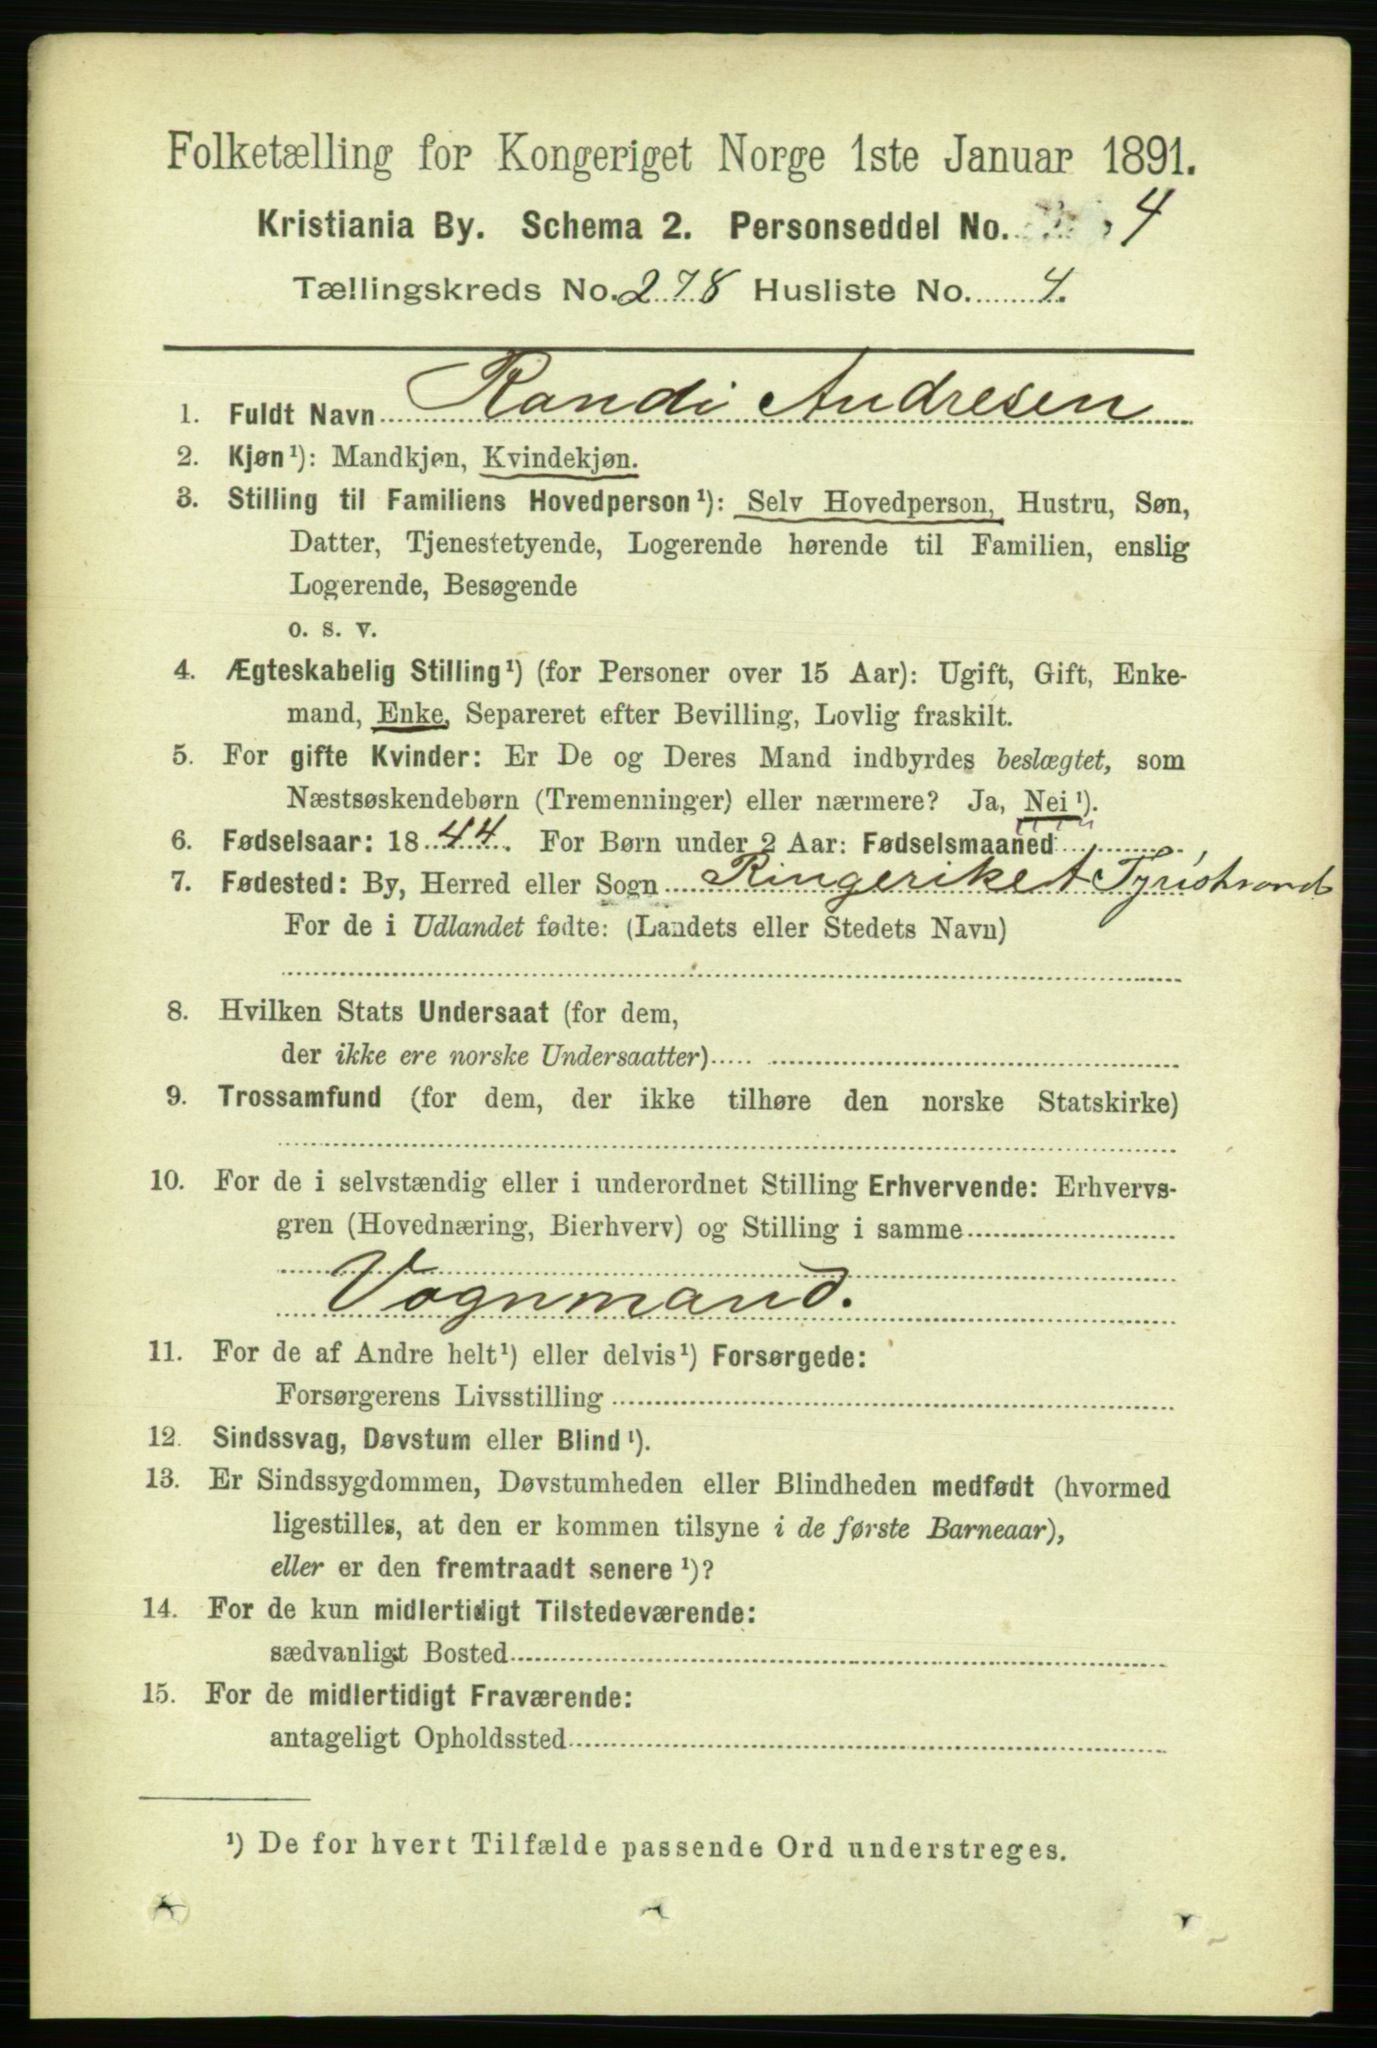 Folketælling for Kongeriget Norge 1ste Januar 1891.
Kristiania By. Schema 2. Personseddel No. 4
Tællingskreds No. 278 Husliste No. 4.
1. Fuldt Navn Randi Andresen
2. Kjøn¹): Mandkjøn, Kvindekjøn.
3. Stilling til Familiens Hovedperson¹): Selv Hovedperson, Hustru, Søn,
Datter, Tjenestetyende, Logerende hørende til Familien, enslig
Logerende, Besøgende
o. s. v.
4. Ægteskabelig Stilling¹) (for Personer over 15 Aar): Ugift, Gift, Enke-
mand, Enke, Separeret efter Bevilling, Lovlig fraskilt.
5. For gifte Kvinder: Er De og Deres Mand indbyrdes beslægtet, som
Næstsøskendebørn (Tremenninger) eller nærmere? Ja, Nei¹).
6. Fødselsaar: 1844. For Børn under 2 Aar: Fødselsmaaned
7. Fødested: By, Herred eller Sogn Ringeriket Tyristrand
For de i Udlandet fødte: (Landets eller Stedets Navn)
8. Hvilken Stats Undersaat (for dem,
der ikke ere norske Undersaatter)
9. Trossamfund (for dem, der ikke tilhøre den norske Statskirke)
10. For de i selvstændig eller i underordnet Stilling Erhvervende: Erhvervs-
gren (Hovednæring, Bierhverv) og Stilling i samme
Vognmand.
11. For de af Andre helt¹) eller delvis¹) Forsørgede:
Forsørgerens Livsstilling
12. Sindssvag, Døvstum eller Blind¹).
13. Er Sindssygdommen, Døvstumheden eller Blindheden medfødt (hvormed
ligestilles, at den er kommen tilsyne i de første Barneaar),
eller er den fremtraadt senere¹)?
14. For de kun midlertidigt Tilstedeværende:
sædvanligt Bosted
15. For de midlertidigt Fraværende:
antageligt Opholdssted
¹) De for hvert Tilfælde passende Ord understreges.